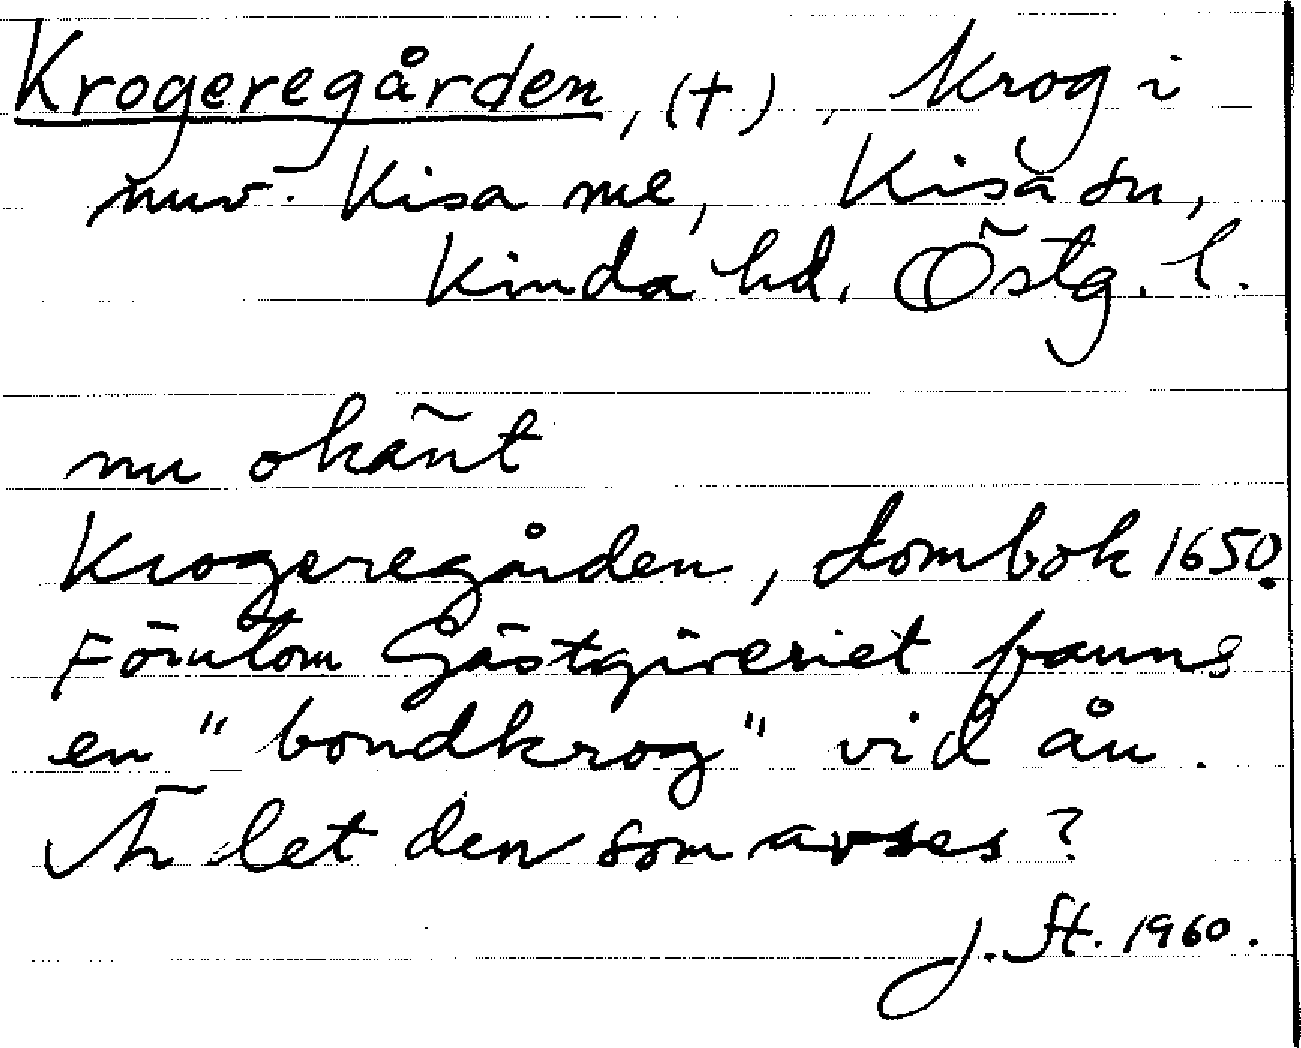 Krogeregården, (†), Krog i
nuv. Kisa me, Kisa sn,
Kinda hd. Östg. l.
nu okänt
Krogeregården, dombok 1650.
Förutom Gästgiveriet fanns
en "bondkrog" vid ån.
Är det den som avses?
J. St. 1960.